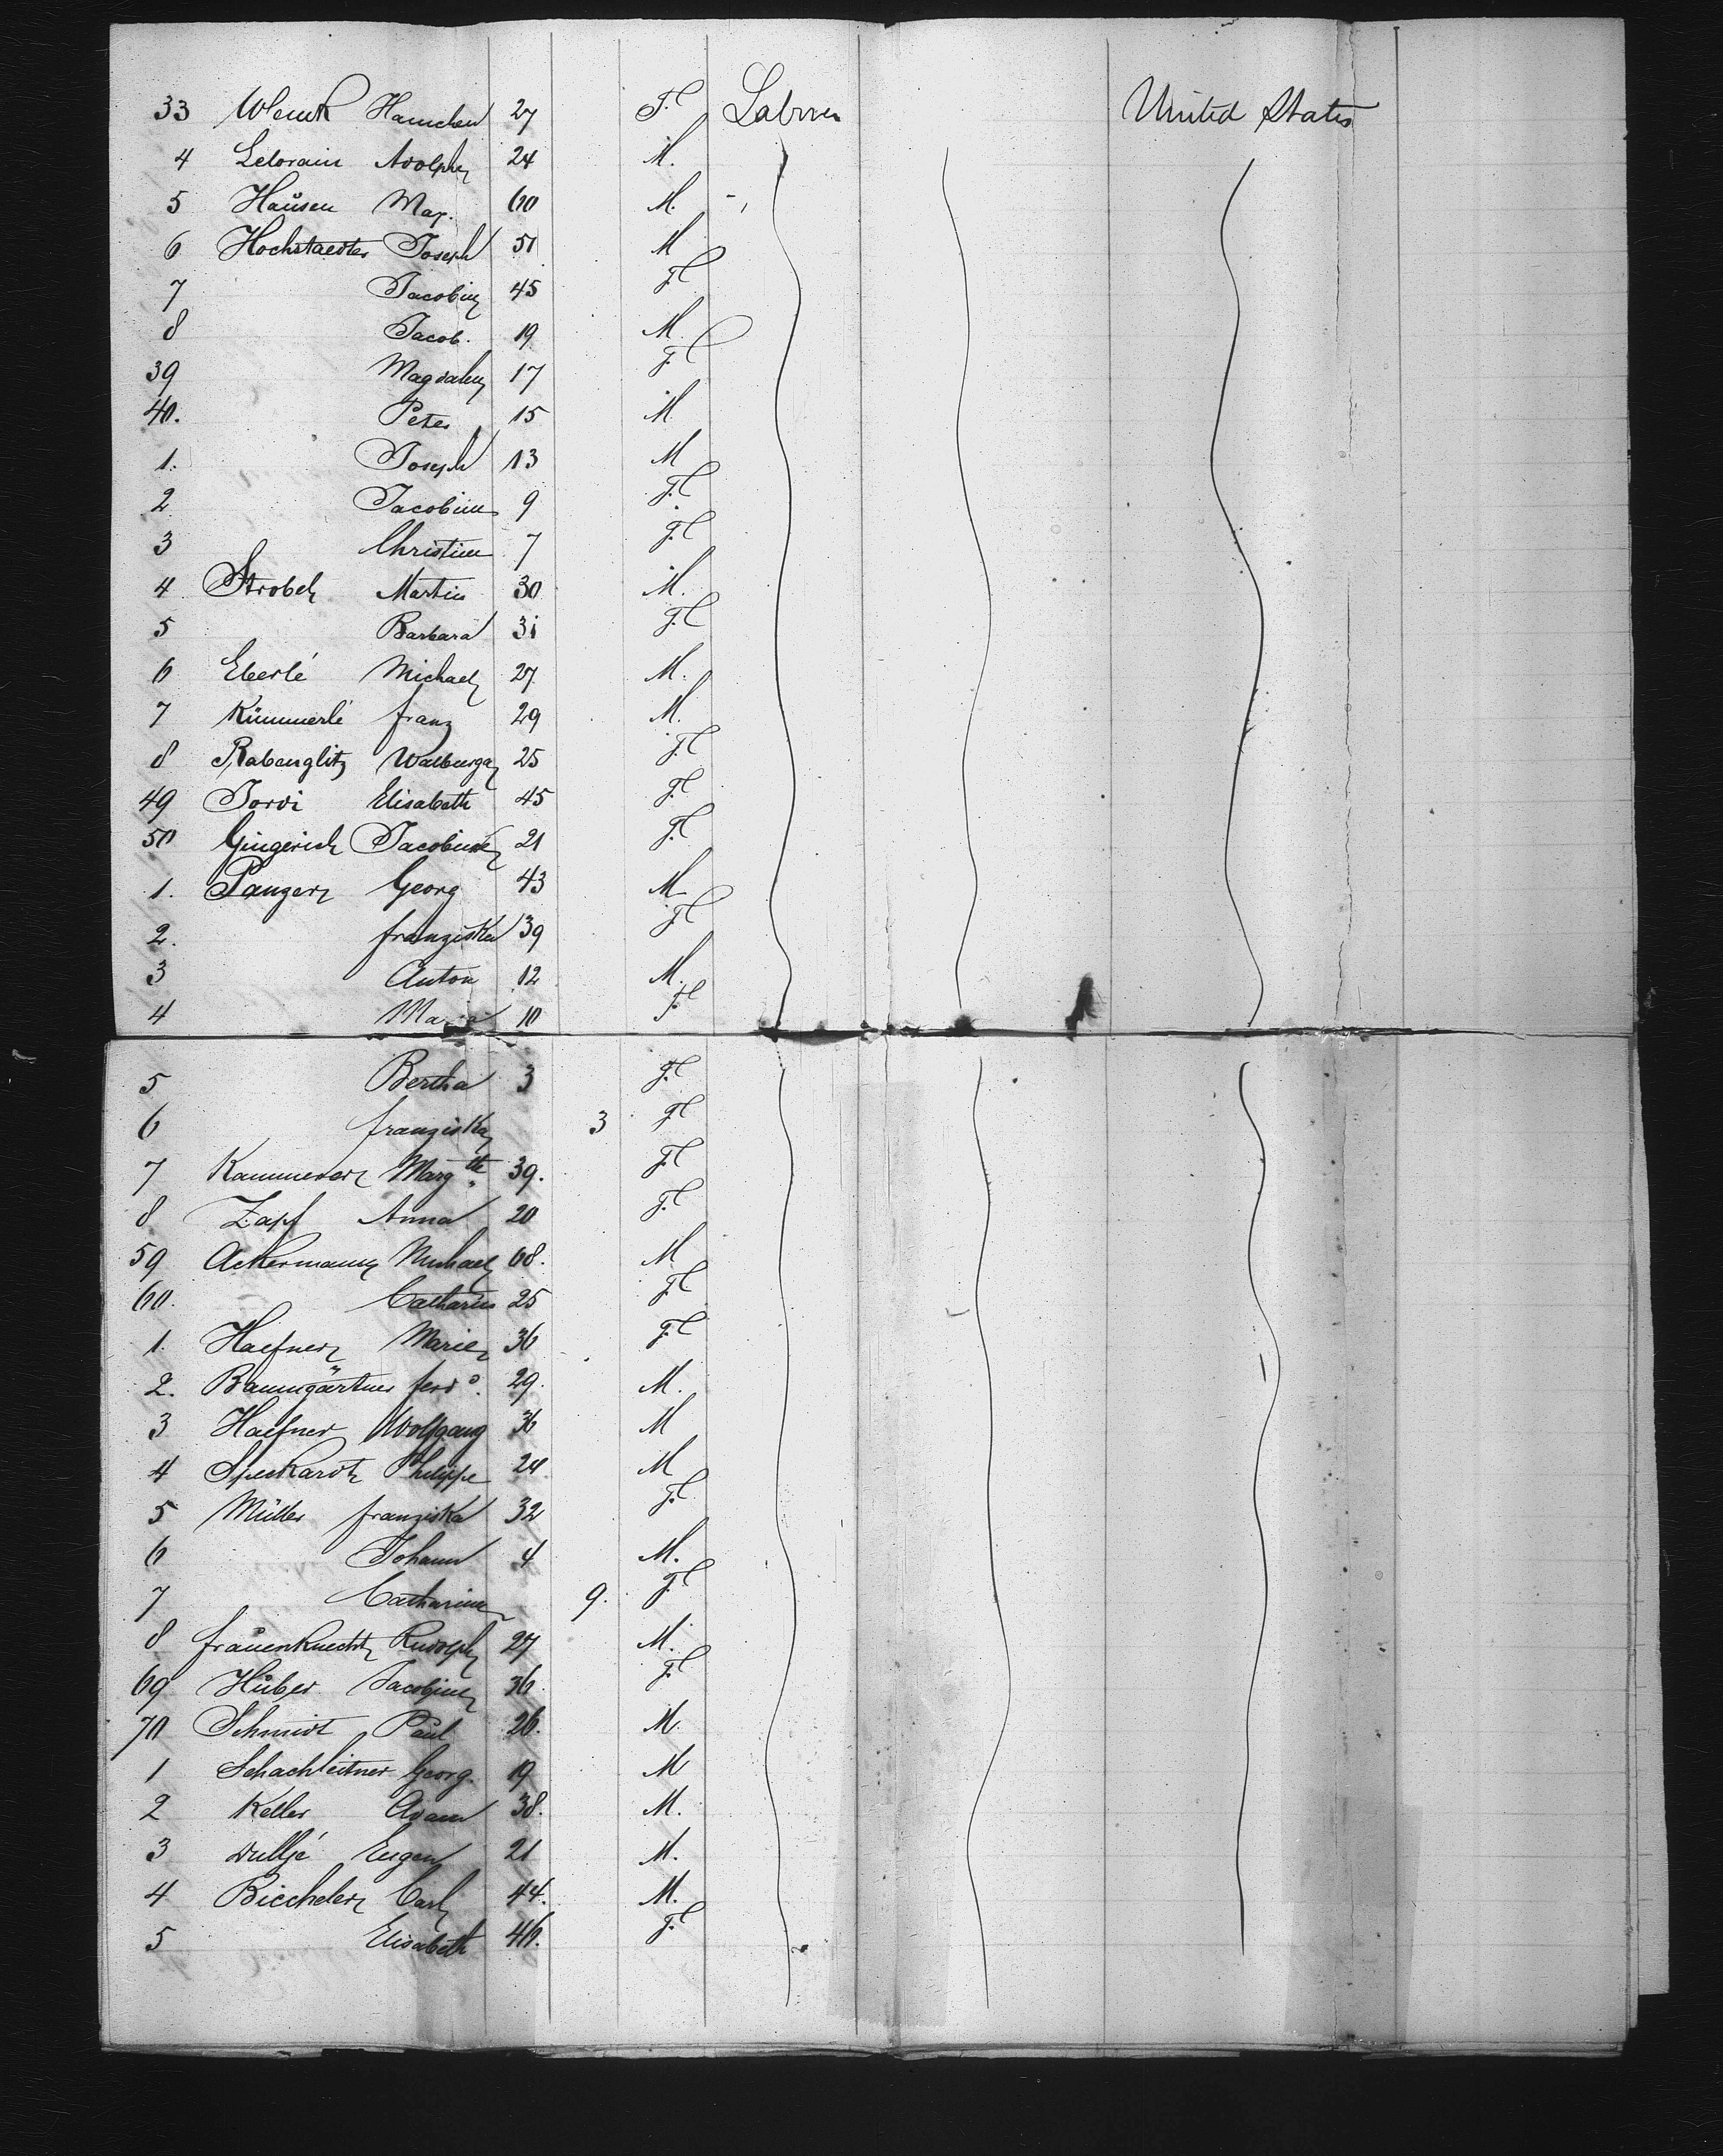 33 Wenck Hannchen 27 F. Labrer United States
4 Lelorain Adolphe 24 M.
5 Haüsen Max. 60 M. "
6 Hochstaedter Joseph 51 M
7 Jacobine 45 F
8 Jacob. 19 M
39 Magdalen 17 F.
40. Peter 15 M
1. Joseph 13 M
2 Jacobine 9 F.
3 Christine 7 F.
4 Strobel Martin 30 M.
5 Barbara 31 F.
6 Eberlé Michael 27 M.
7 Kümmerlé franz 29 M.
8 Rabenglitz Walburga 25 F.
49 Jordi Elisabeth 45 F.
50 Gingerich Jacobine 21 F.
1. Panger Georg 43 M
2. franziska 39 F
3 Anton 12 M.
4 Maria 10 F
5 Bertha 3 F.
6 franziska 3 F
7 Kammerer Margthe 39. F.
8 Zapf Anna 20 F.
59 Ackermann Michael 68. M
60. Catharine 25 F.
1. Haefner Marie 36 F.
2. Baumgärtner ferd. 29. M.
3 Haefner Wolfgang 36 M
4 Speckardt Philippe 24. M
5 Müller franziska 32 F.
6 Johann 4 M.
7 Catharine 9. F
8 fraüenknecht Rudolph 27 M.
69 Hüber Jacobine 36. F.
70 Schmidt Paül 26. M.
1 Schachleitner Georg. 19 M
2 Keller Adam 38. M.
3 Eugen 21 M.
4 Biecheler Carl 44. M.
5 Elisabeth 46. F.